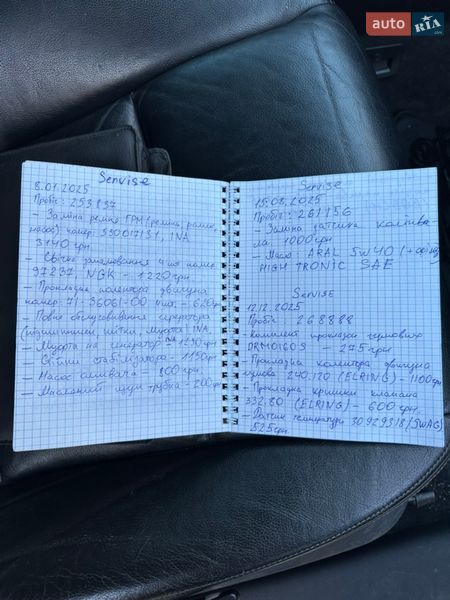 auto RIA.com
Servise
8.01.2025
Пробіг: 253 837
- Заміна ремня ГРМ (ремінь, ролик,
насос) номер: 530017131, INA
3140 грн.
- Свічки запалювання 4 шт. номер
97237, NGK - 1220 грн.
- Прокладка колектора двигуна
номер: 71-36061-00 4 шт. - 620 грн
- Повне обслуговування генератора
(підшипники, щітки, муфта) INA
- Муфта на генератор INA 1290 грн
- Стійки стабілізатора - 1150 грн
- Насос омивача - 800 грн.
- Масляний щуп трубка - 200 грн
Servise
15.08.2025
Пробіг: 261 156
- Заміна датчика колінва
ла. 1000 грн
- Масло ARAL 5w40 (
HIGH TRONIC SAE
Servise
12.12.2025
Пробіг 268888
- комплект прокладок термових
DRM01609 - 275 грн
- Прокладка колектора двигуна
гумова 240.120 (ELRING) - 1100 грн
- Прокладка кришки клапана
332.80 (ELRING) - 600 грн.
- Датчик температури 30929318 (SWAG)
525 грн